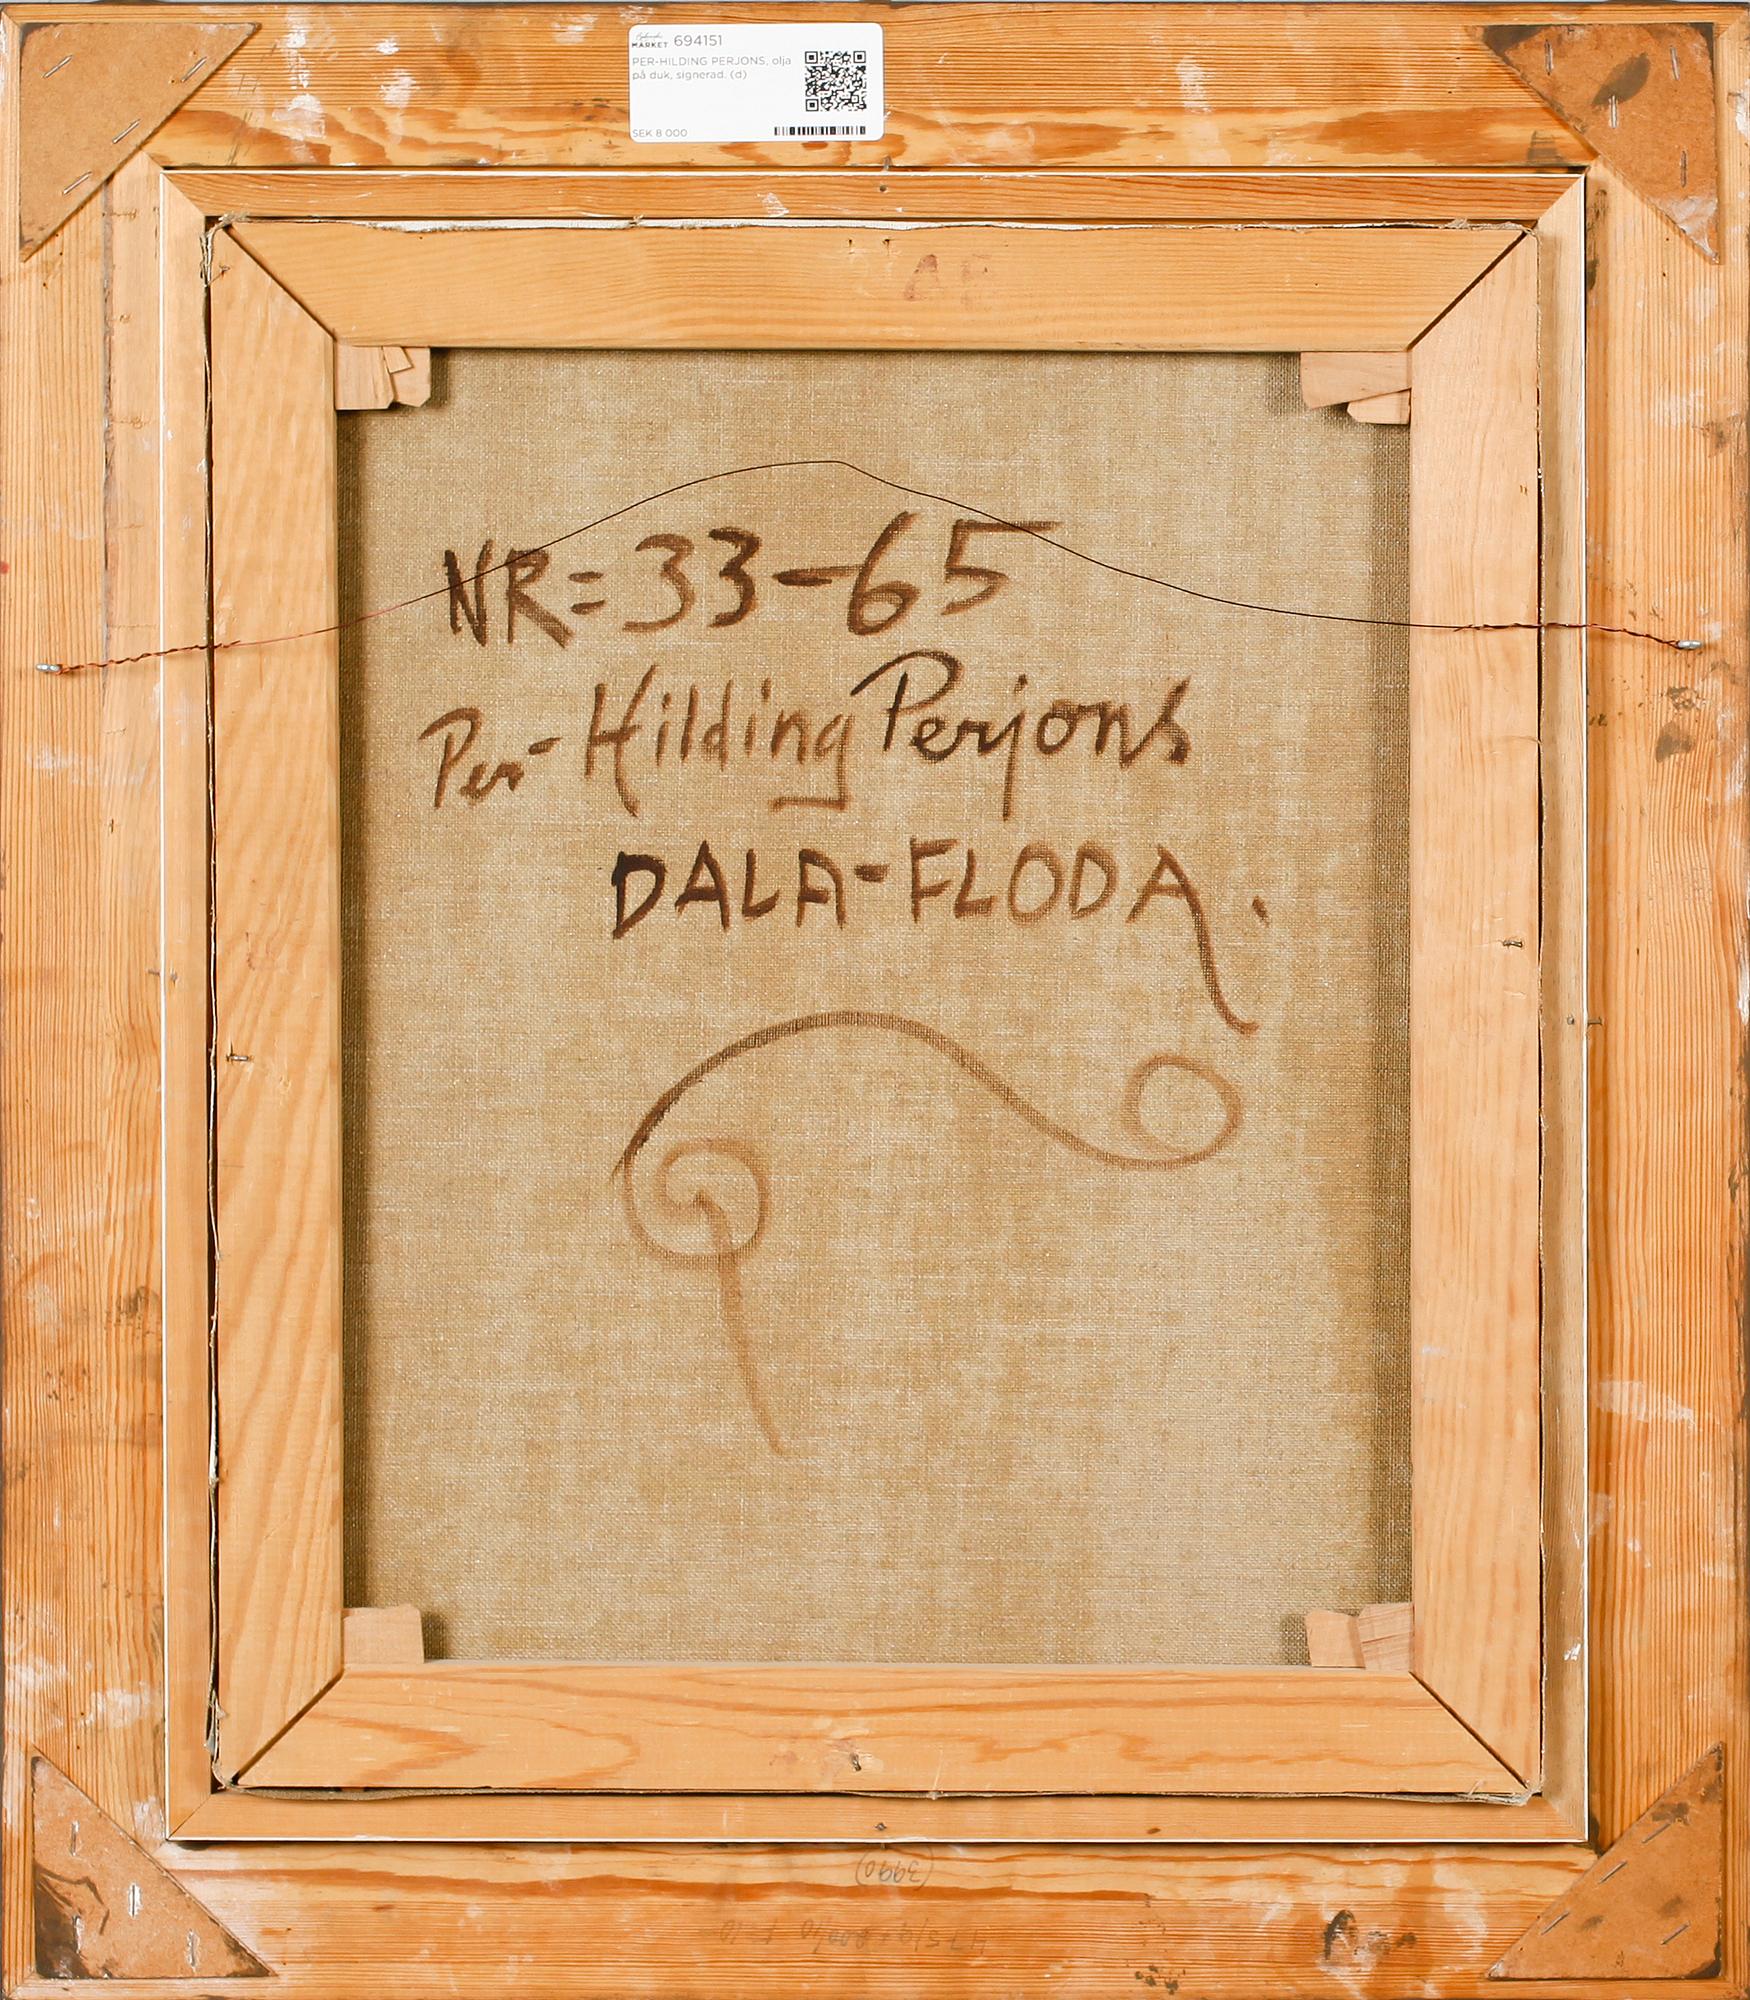 Bukowskis
MARKET 694151
PER-HILDING PERJONS, olja
på duk, signerad. (d)
SEK 8 000
NR=33-65
Per-Hilding Perjons
DALA-FLODA.
3990